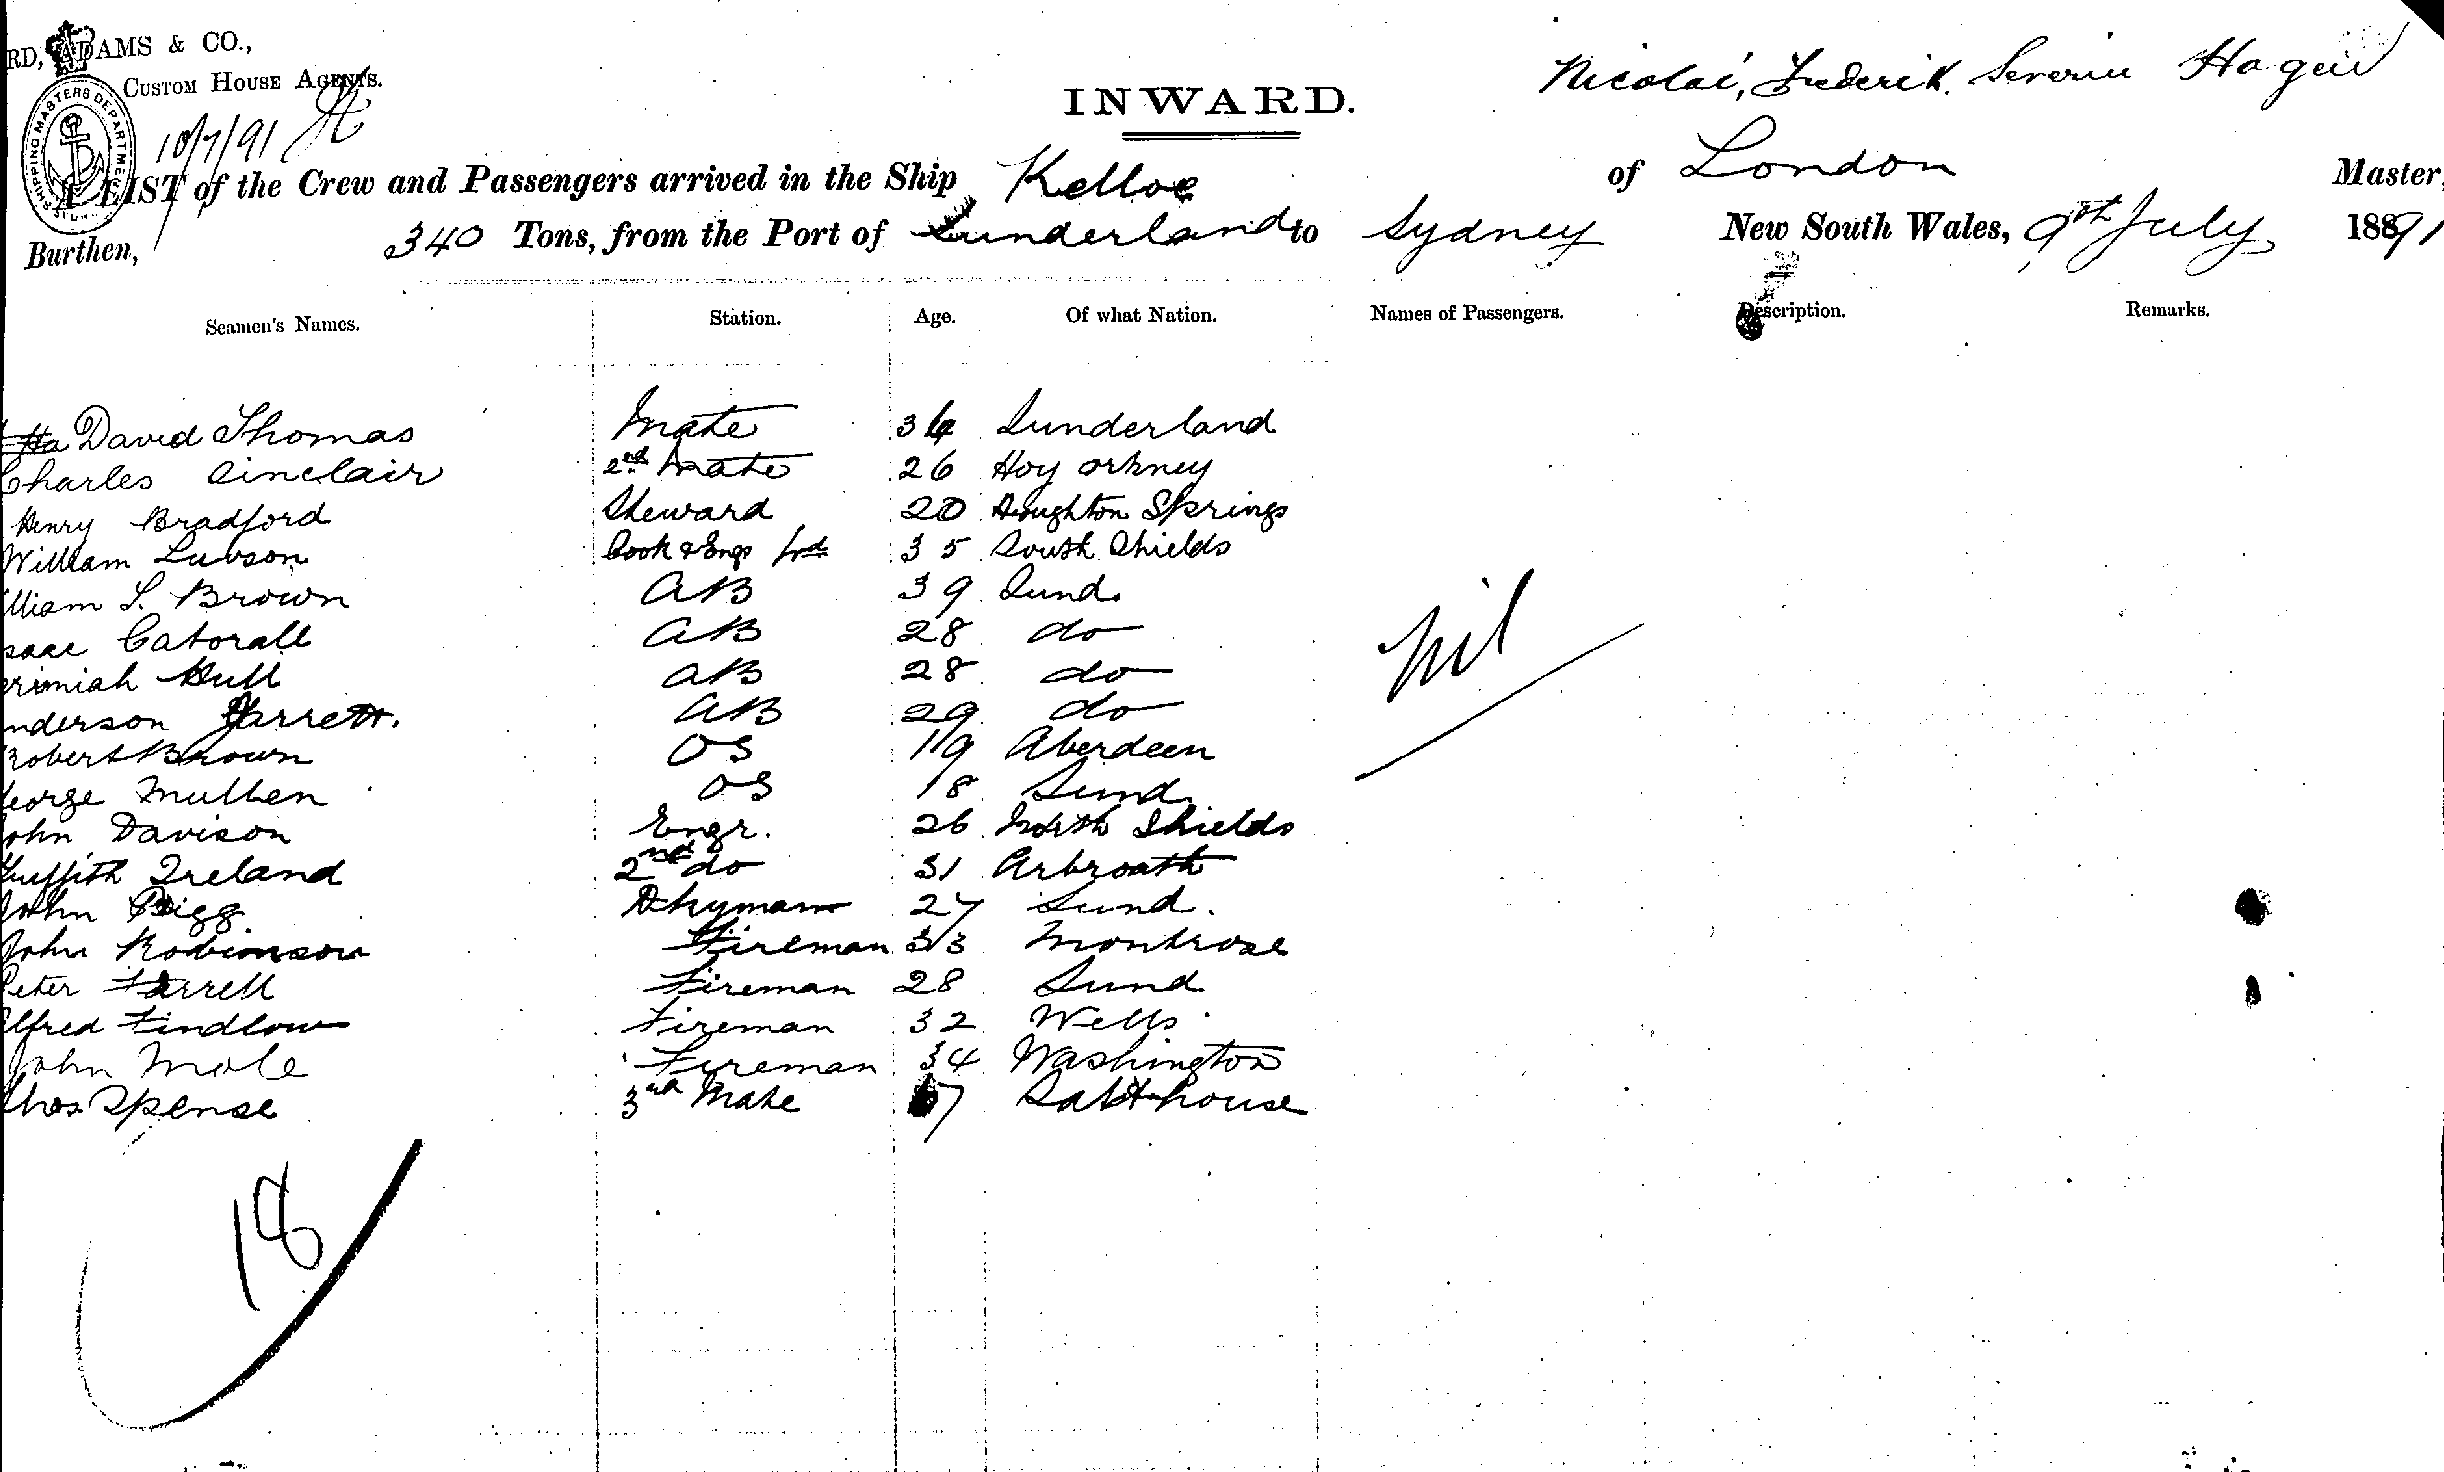 RD, ADAMS & CO.,
CUSTOM HOUSE AGENTS.
SHIPPING MASTERS DEPARTMENT
10/7/91
INWARD.
Nicolai, Frederik. Severin Hagen
A LIST of the Crew and Passengers arrived in the Ship Kelloe of London Master,
Burthen, 340 Tons, from the Port of Sunderland to Sydney New South Wales, 9th July 1891
Seamen's Names. Station. Age. Of what Nation. Names of Passengers. Description. Remarks.
David Thomas Mate 34 Sunderland
Charles Sinclair 2nd Mate 26 Hoy Orkney
Henry Bradford Steward 20 Houghton Springs
William Lawson Cook & 35 South Shields
lliam S. Brown AB 39 Sund.
saac Catorall AB 28 do
erimiah Hull AB 28 do
nderson Jarrett. AB 29 do
Robert Brown OS 19 Aberdeen
George Mullen OS 18 Sund.
John Davison Engr. 26 North Shields
Griffith Ireland 2nd do 31 Arbroath
John Bigg Dkyman 27 Sund.
John Robinson Fireman 33 Montrose
Peter Farrell Fireman 28 Sund
Alfred Findlow Fireman 32 Wells
John Mole Fireman 34 Washington
Thos Spense 3rd Mate 17 Salthouse
Nil
18